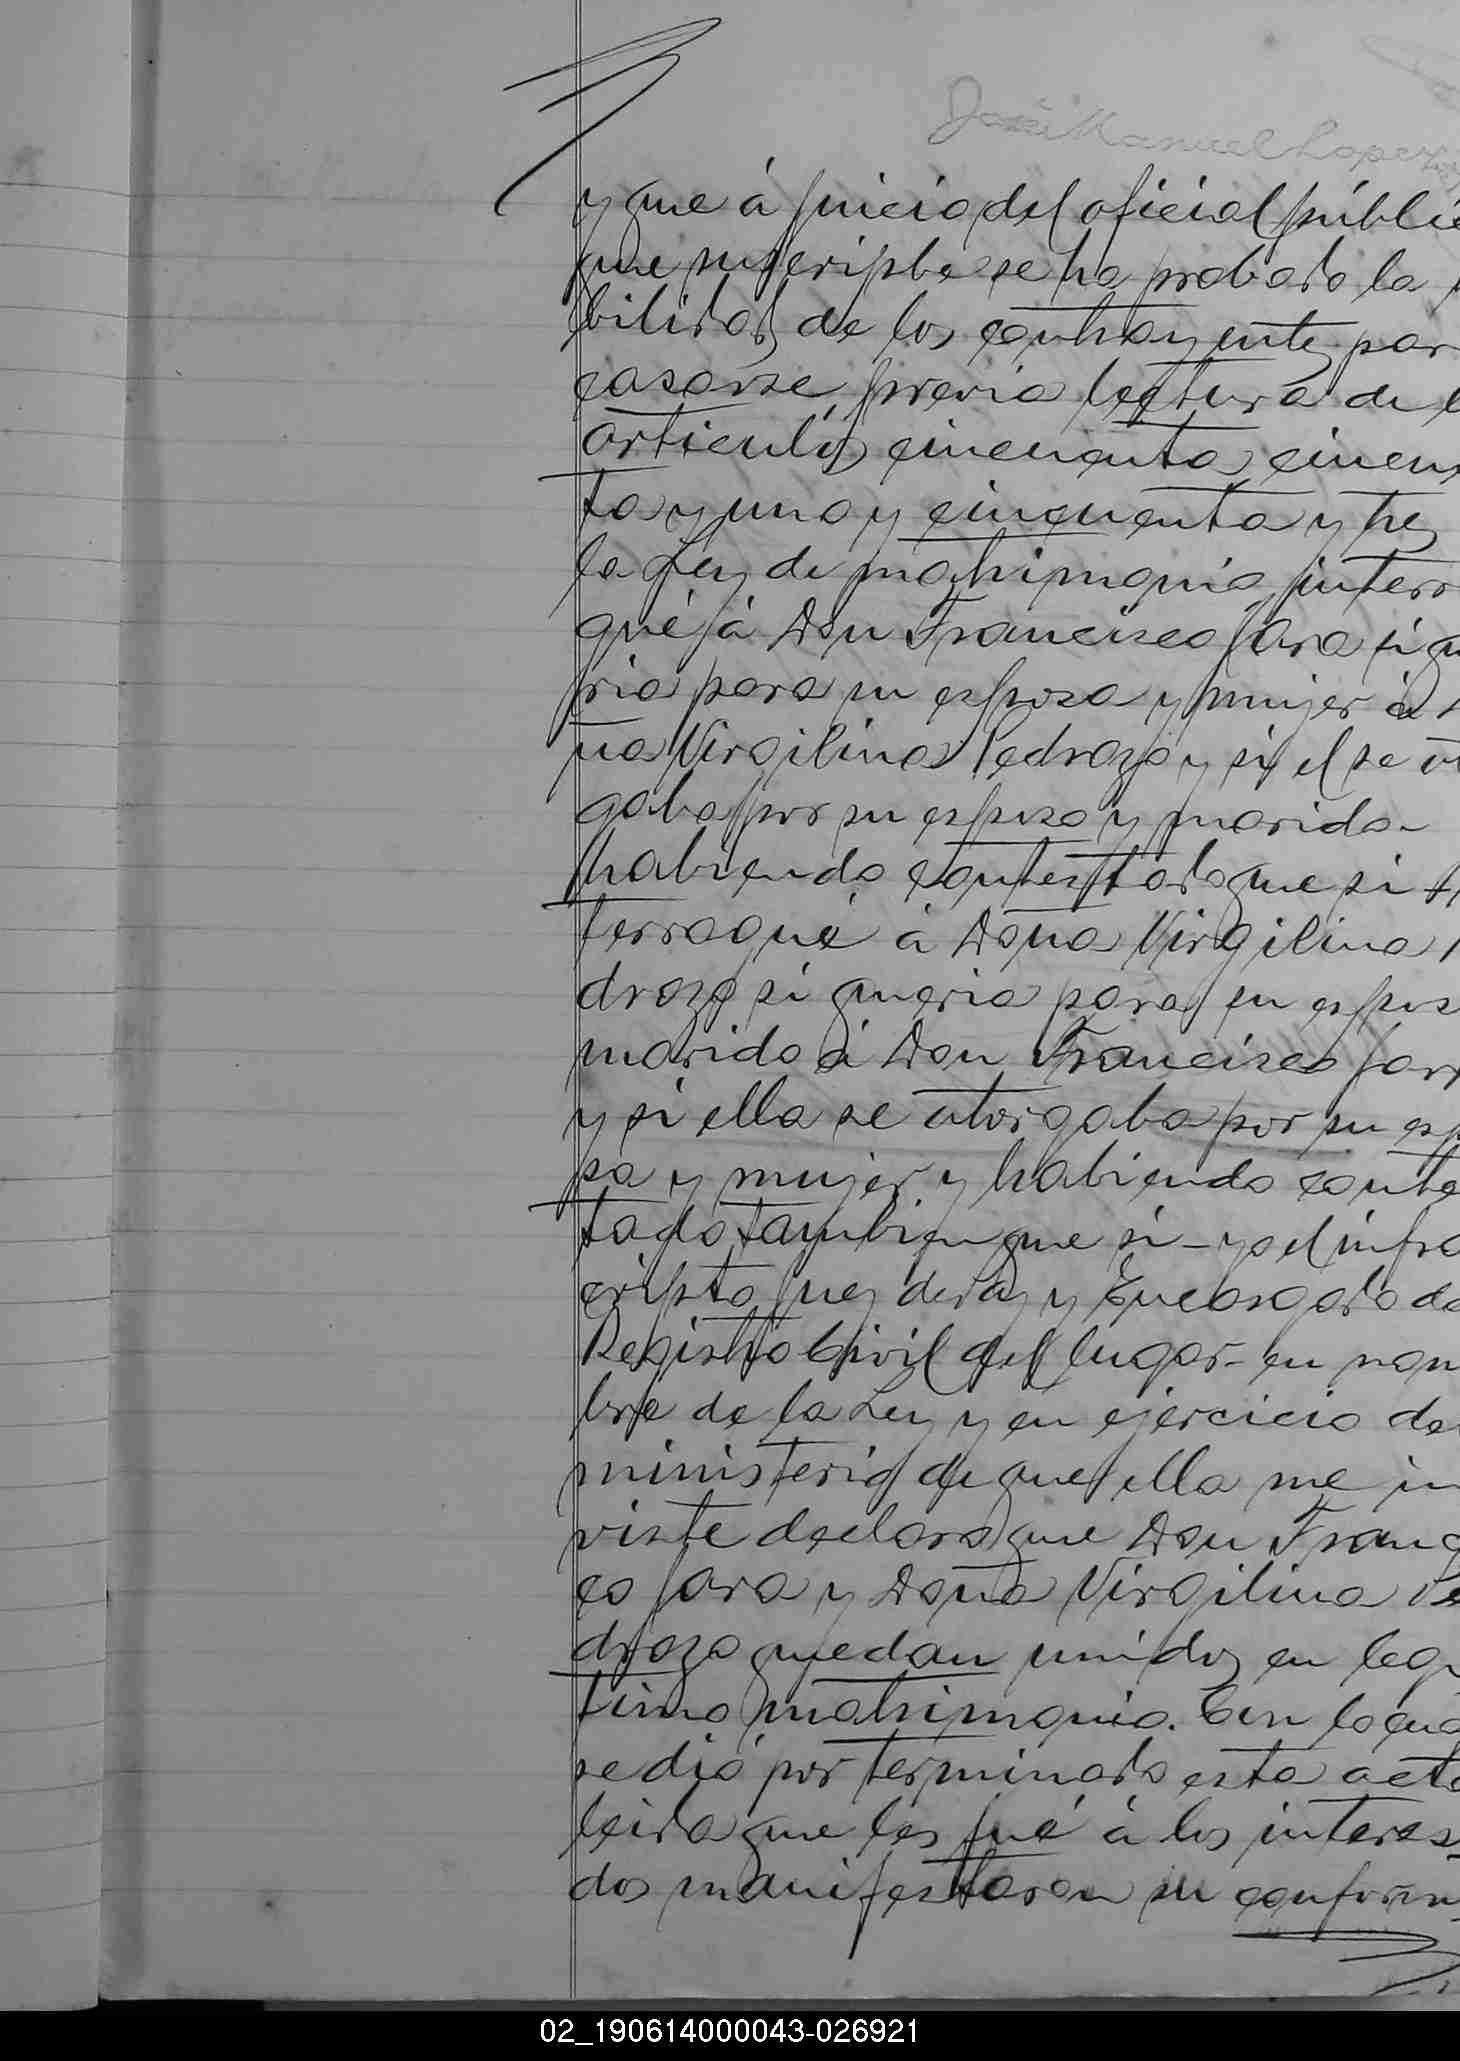 José Manuel Lopez
y que á juicio del oficial públic
que suscripbe se ha probado la
bilidad de los contrayentes par
casarse, previa lectura de l
articulos cincuenta, cincuen
ta y uno y cincuenta y tres
la Ley de matrimonio interr
gué á Don Francisco Jara si qu
ria para su esposa y mujer á D
na Virgilina Pedrozo y si el se ot
gaba por su esposo y marido-
habiendo contestado que si
terrogué á Doña Virgilina P
drozo si queria para su espos
marido á Don Francisco Jar
y si ella se otorgaba por su esp
sa y mujer y habiendo contes
tado tambien que si - yo el infra
cripto Juez de Paz y Encargado de
Registro Civil del lugar- en nom
bre de la Ley y en ejercicio de
ministerio de que ella me in
viste declaro que Don Franc
co Jara y Doña Virgilina Pe
drozo quedan unidos en legi
timo matrimonio. Con lo cua
se dió por terminado esta acta
leida que les fué á los interes
dos manifestaron su conform
02_190614000043-026921